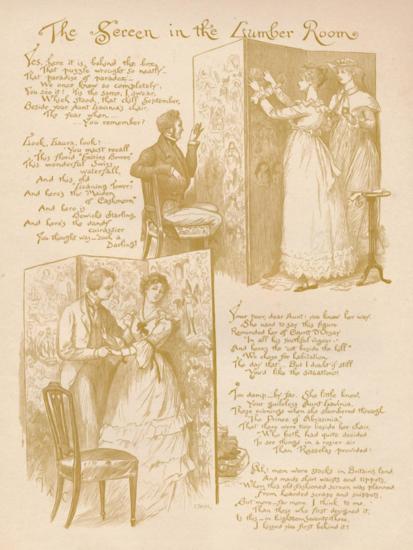 The Screen in the Lumber Room
Yes, here it is, behind the box,
That puzzle wrought so neatly—
That paradise of paradox—
We once knew so completely;
You see it? 'Tis the same, I swear,
Which stood, that chill September,
Beside your Aunt Lavinia's chair
The year when....
....You remember?
Look, Laura, look!
You must recall
This florid "Fairy's Bower,"
This wonderful Swiss
waterfall,
And this old
"Leaning Tower;"
And here's the "Maiden
of Cashmere,"
And here is
Bewick's Starling,
And here's the dandy
cuirassier
You thought was—such a
Darling!
Your poor, dear Aunt! you know her way,
She used to say this figure
Reminded her of Count D'Orsay
"In all his youthful vigour:"
And here's the "cot beside the hill"
We chose for habitation,
The day that... But I doubt if still
You'd like the situation!
Too damp—by far. She little knew,
Your guileless Aunt Lavinia,
Those evenings when she slumbered through
"The Prince of Abyssinia,"
That there were two beside her chair,
Who both had quite decided
To see things in a rosier air
Than Rasselas provided!
Ah! men wore stocks in Britain's land,
And maids short waists and tippets,
When this old-fashioned screen was planned
From hoarded scraps and snippets;
But more—far more, I think—to me
Than those who first designed it,
Is this—in Eighteen Seventy-Three
I kissed you first behind it!